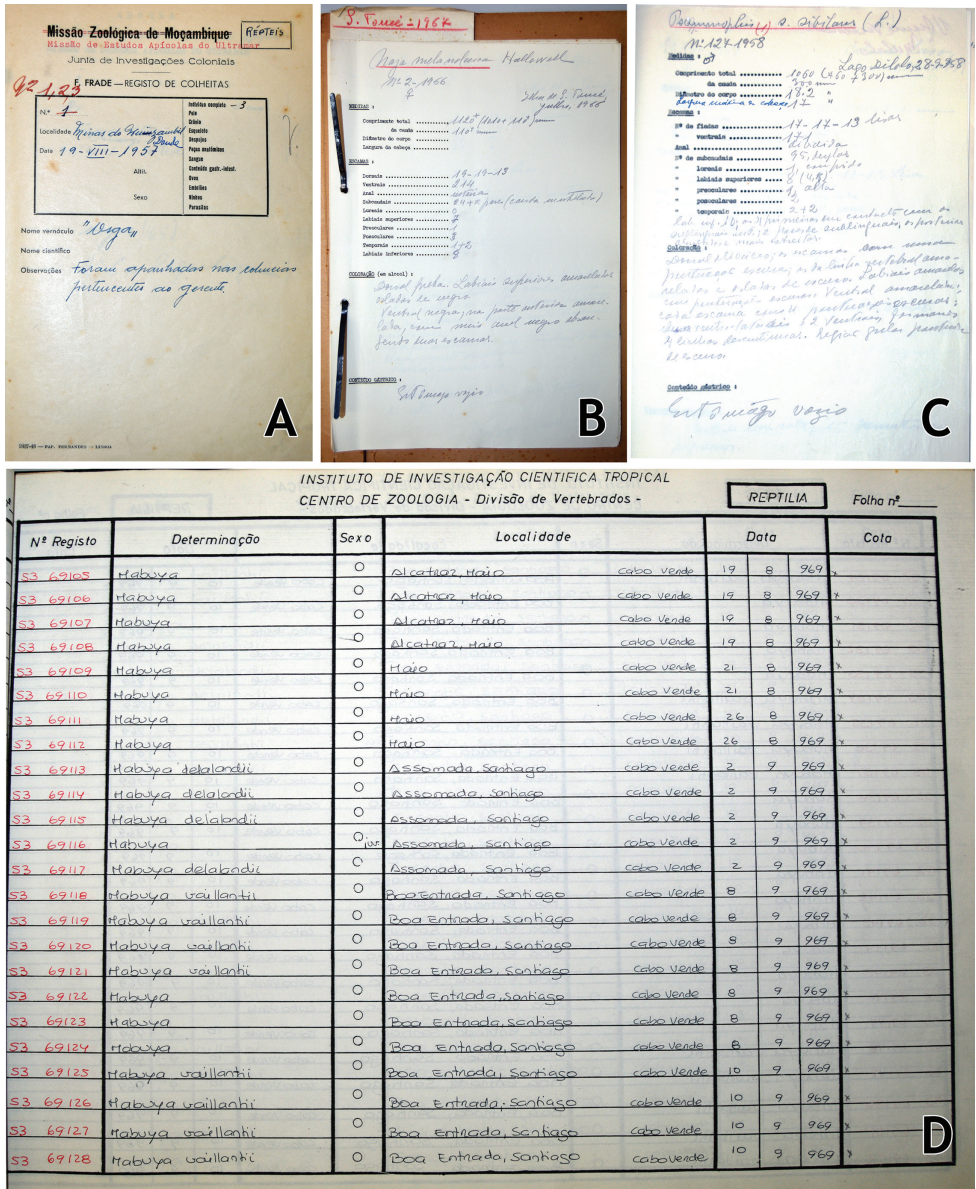 Missão Zoológica de Moçambique
RÉPTEIS
Missão de Estudos Apícolas do Ultramar
Junta de Investigações Coloniais
F. FRADE — REGISTO DE COLHEITAS
Nº 1,23
N.º 1
Localidade Minas do
Dande
Data 19-VIII-1957
Altit.
Sexo
Indivíduo completo — 3
Pele
Crânio
Esqueleto
Despojos
Peças anatómicas
Sangue
Conteúdo gastr.-intest.
Ovos
Embriões
Ninhos
Parasitas
Nome vernáculo "Osga"
Nome científico
Observações Foram apanhadas nas colmeias
pertencentes ao gerente.
A
S. Tomé = 1967
Naja melanoleuca Hallowell
Nº 2-1966
♀
Ilha de S. Tomé,
julho, 1966
MEDIDAS :
Comprimento total
da cauda 110
Diâmetro do corpo
Largura da cabeça
ESCAMAS :
Dorsais 19-19-13
Ventrais 214
Anal inteira
Subcaudais (cauda mutilada)
Loreais 0
Labiais superiores 7
Preoculares 1
Posoculares 3
Temporais 1+2
Labiais inferiores 8
COLORAÇÃO (em alcool) :
Dorsal preta. Labiais superiores amareladas
orladas de negro
Ventral negra, na parte anterior amare-
lada, com meio anel negro abran-
gendo duas escamas.
CONTEUDO GÁSTRICO :
Estomago vazio
B
Psammophis s. sibilans (L.)
Nº 127-1958
Lago Dilolo, 28-9-958
Medidas : ♂
Comprimento total 1060 (760+300) mm
da cauda 300 mm
Diâmetro do corpo 18,2 "
Largura máxima da cabeça 17 "
Escamas :
Nº de fiadas 17-17-13 lisas
" ventrais 171
Anal dividida
Nº de subcaudais 95, duplas
" loreais 1, comprido
" labiais superiores 8 (4,5)
" preoculares 1, alta
" posoculares 2
" temporais 2+2
Coloração :
Conteúdo gástrico :
Estomâgo vazio
C
INSTITUTO DE INVESTIGAÇÃO CIENTIFICA TROPICAL
CENTRO DE ZOOLOGIA - Divisão de Vertebrados -
REPTILIA
Folha nº
Nº Registo Determinação Sexo Localidade Data Cota
S3 69105 Mabuya O Alcatraz, Maio cabo verde 19 8 969 x
S3 69106 Mabuya O Alcatraz, Maio cabo verde 19 8 969 x
S3 69107 Mabuya O Alcatraz, Maio cabo verde 19 8 969 x
S3 69108 Mabuya O Alcatraz, Maio cabo verde 19 8 969 x
S3 69109 Mabuya O Maio cabo verde 21 8 969 x
S3 69110 Mabuya O Maio cabo verde 21 8 969 x
S3 69111 Mabuya O Maio cabo verde 26 8 969 x
S3 69112 Mabuya O Maio cabo verde 26 8 969 x
S3 69113 Mabuya delalandii O Assomada, Santiago cabo verde 2 9 969 x
S3 69114 Mabuya delalandii O Assomada, Santiago cabo verde 2 9 969 x
S3 69115 Mabuya delalandii O Assomada, Santiago cabo verde 2 9 969 x
S3 69116 Mabuya O juv Assomada, Santiago cabo verde 2 9 969 x
S3 69117 Mabuya delalandii O Assomada, Santiago cabo verde 2 9 969 x
S3 69118 Mabuya vaillantii O Boa Entrada, Santiago cabo verde 8 9 969 x
S3 69119 Mabuya vaillanti O Boa Entrada, Santiago cabo verde 8 9 969 x
S3 69120 Mabuya vaillanti O Boa Entrada, Santiago cabo verde 8 9 969 x
S3 69121 Mabuya vaillanti O Boa Entrada, Santiago cabo verde 8 9 969 x
S3 69122 Mabuya O Boa Entrada, Santiago cabo verde 8 9 969 x
S3 69123 Mabuya O Boa Entrada, Santiago cabo verde 8 9 969 x
S3 69124 Mabuya O Boa Entrada, Santiago cabo verde 8 9 969 x
S3 69125 Mabuya vaillanti O Boa Entrada, Santiago cabo verde 10 9 969 x
S3 69126 Mabuya vaillanti O Boa Entrada, Santiago cabo verde 10 9 969 x
S3 69127 Mabuya vaillanti O Boa Entrada, Santiago cabo verde 10 9 969 x
S3 69128 Mabuya vaillanti O Boa Entrada, Santiago cabo verde 10 9 969 x
D